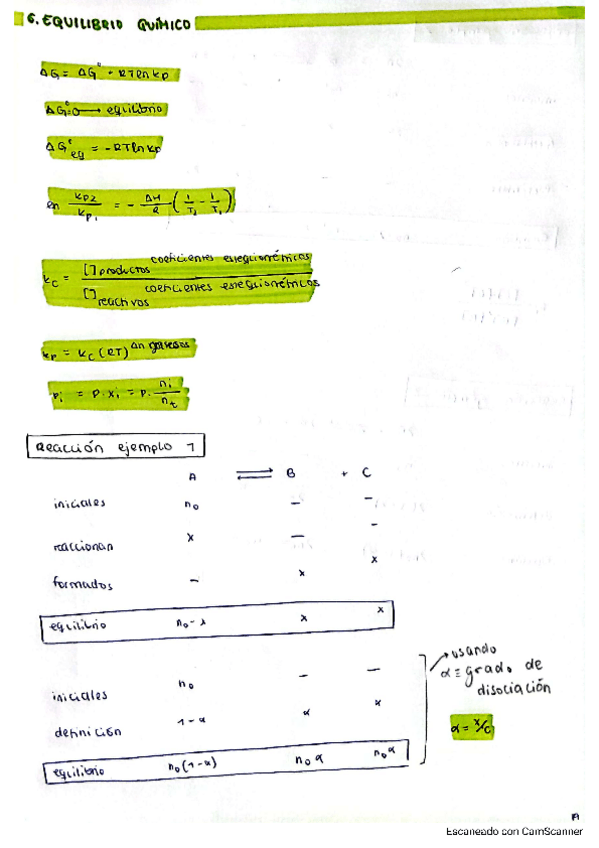 6. EQUILIBRIO QUÍMICO
ΔG = ΔG° + RTlnkp
ΔG°=0 → equilibrio
ΔG°eq = -RTlnkp
en kp2/kp1 = - ΔH/R (1/T2 - 1/T1)
kc = [ ]productos coeficientes estequiométricos / [ ]reactivos coeficientes estequiométricos
kp = kc (RT) Δn gaseosos
pi = P · xi = P · ni/nt
Reacción ejemplo 1
A ⇌ B + C
iniciales n0 — —
reaccionan x — —
formados — x x
equilibrio n0-x x x
iniciales n0 — —
definición 1-α α α
equilibrio n0(1-α) n0α n0α
→ usando
α ≡ grado de
disociación
α = x/c
Escaneado con CamScanner